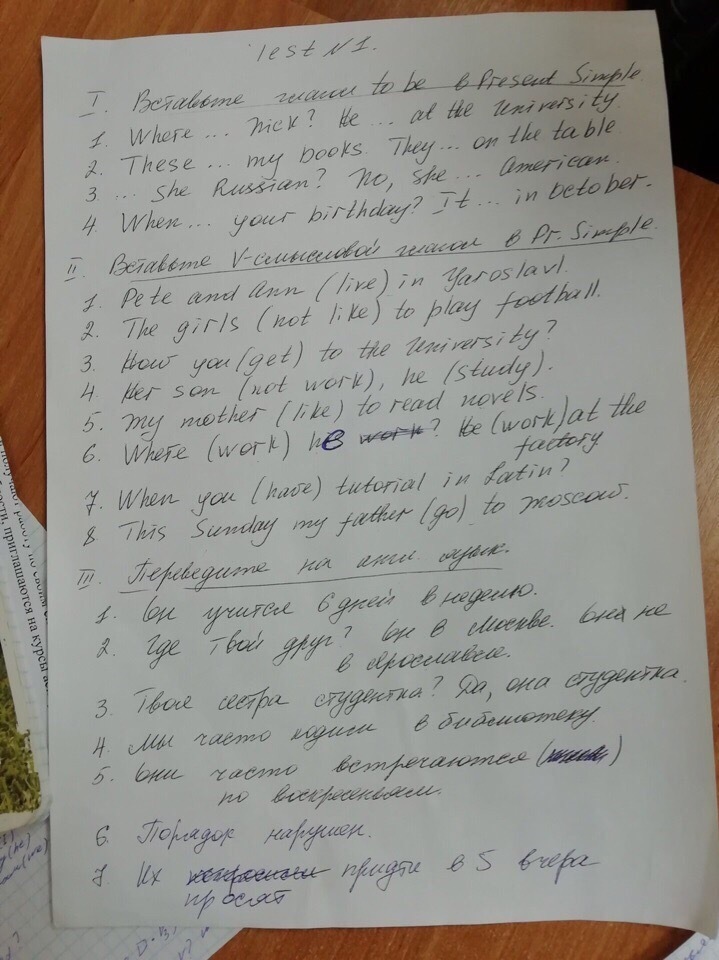 Test N1.
I. Вставьте глагол to be в Present Simple.
1. Where ... Nick? He ... at the University.
2. These ... my books. They ... on the table.
3. ... She Russian? No, she ... American.
4. When ... your birthday? It ... in October.
II. Вставьте V-смысловой глагол в Pr. Simple.
1. Pete and Ann (live) in Yaroslavl.
2. The girls (not like) to play football.
3. How you (get) to the University?
4. Her son (not work), he (study).
5. My mother (like) to read novels.
6. Where (work) he work? He (work) at the
factory
7. When you (have) tutorial in Latin?
8. This Sunday my father (go) to Moscow.
III. Переведите на англ. язык.
1. Он учится 6 дней в неделю.
2. Где твой друг? Он в Москве. Она не
в Ярославле.
3. Твоя сестра студентка? Да, она студентка.
4. Мы часто ходим в библиотеку.
5. Они часто встречаются ()
по воскресеньям.
6. Порядок нарушен.
7. Их придти в 5 вчера
просят
получают работу по своим
приглашаются на курсы